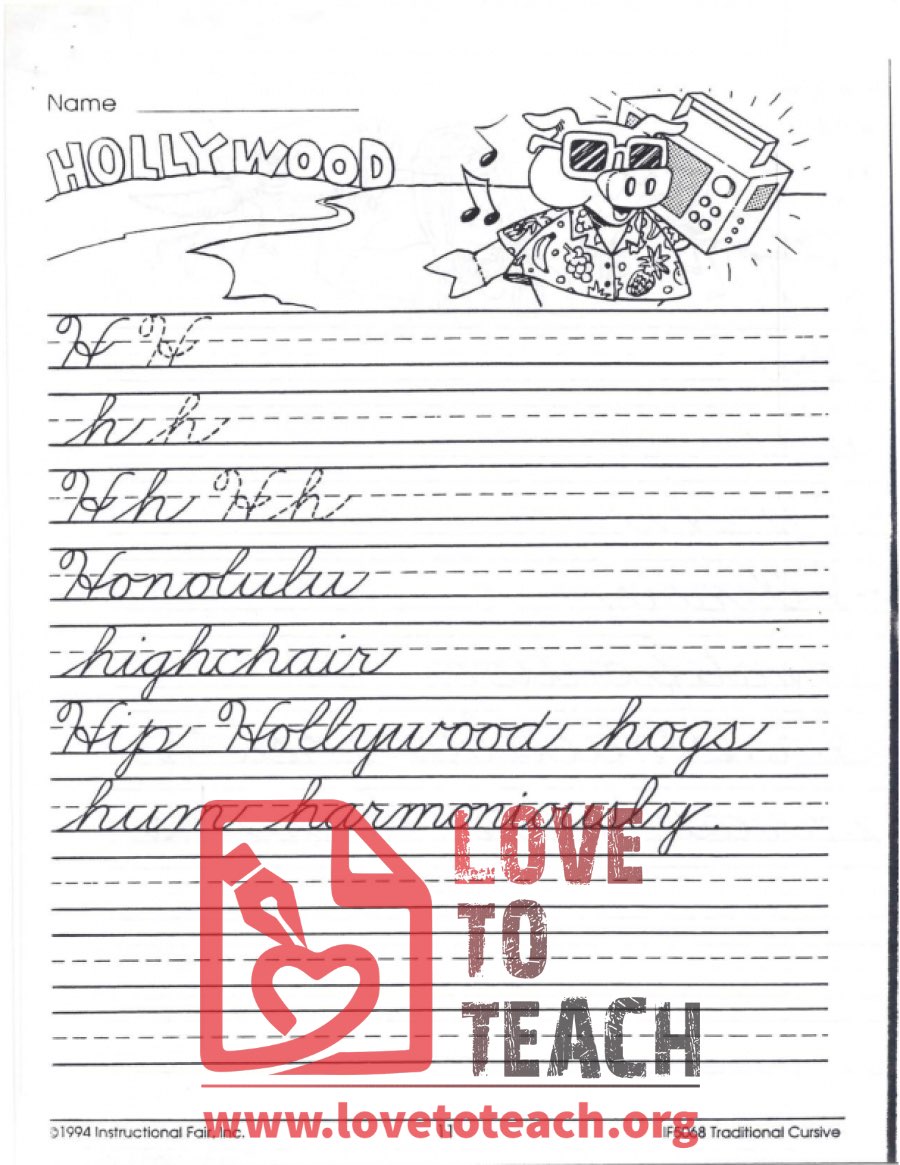 Name
HOLLYWOOD
H H
h h
Hh Hh
Honolulu
highchair
Hip Hollywood hogs
hum harmoniously.
LOVE
TO
TEACH
www.lovetoteach.org
©1994 Instructional Fair, Inc. 11 IF5068 Traditional Cursive